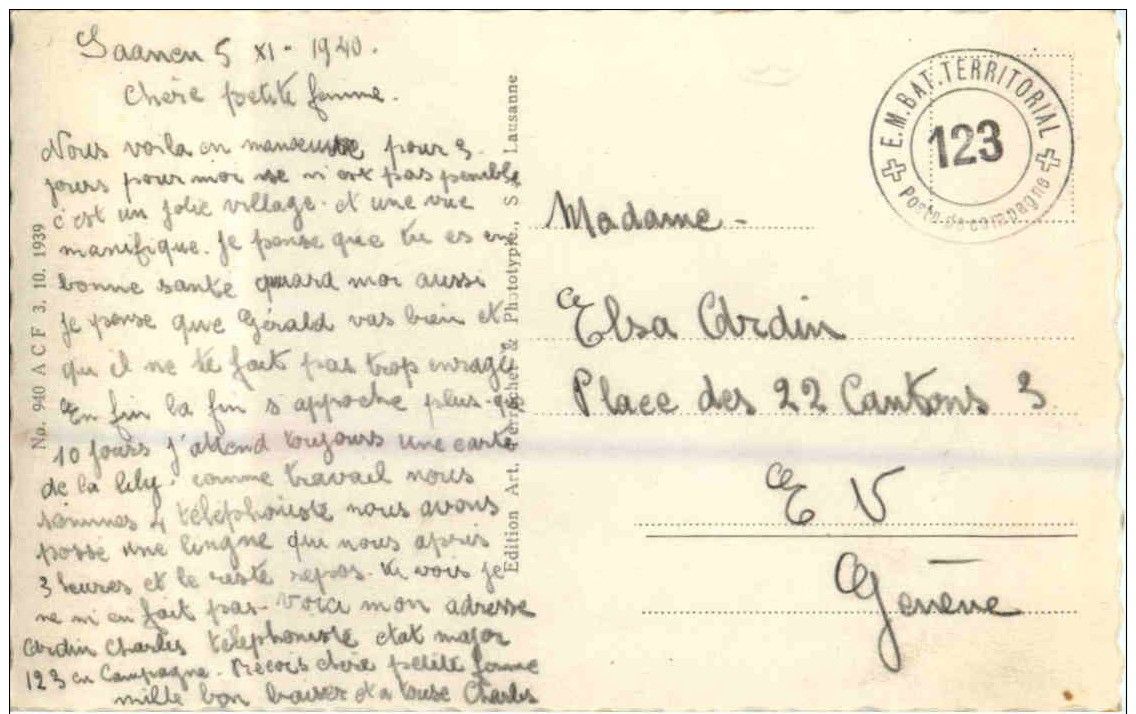 Saanen 5 XI - 1940.
Chère petite femme.
Nous voila en manœuvre pour 3
jours pour moi se n'est pas penible
c'est un jolie village. et une vue
manifique. Je pense que tu es en
bonne santé quand moi aussi
je pense que Gérald vas bien et
qu il ne te fait pas trop enragé.
En fin la fin s approche plus que
10 jours j'attend toujours une carte
de la Lily. comme travail nous
sommes 4 téléphoniste nous avons
posse une lingne qui nous apris
3 heures et le reste repos. tu vois je
ne m en fait pas. Voici mon adresse
Ardin Charles telephoniste etat major
123 en Campagne. Recois chère petite femme
mille bon baiser et a Charles
No. 940 A C F 3. 10. 1939
Edition Art. Perrochet & Phototypie, S. Lausanne
E.M. BAT. TERRITORIAL
123
Poste de campagne
Madame -
Elsa Ardin
Place des 22 Cantons 3
E V
Genève